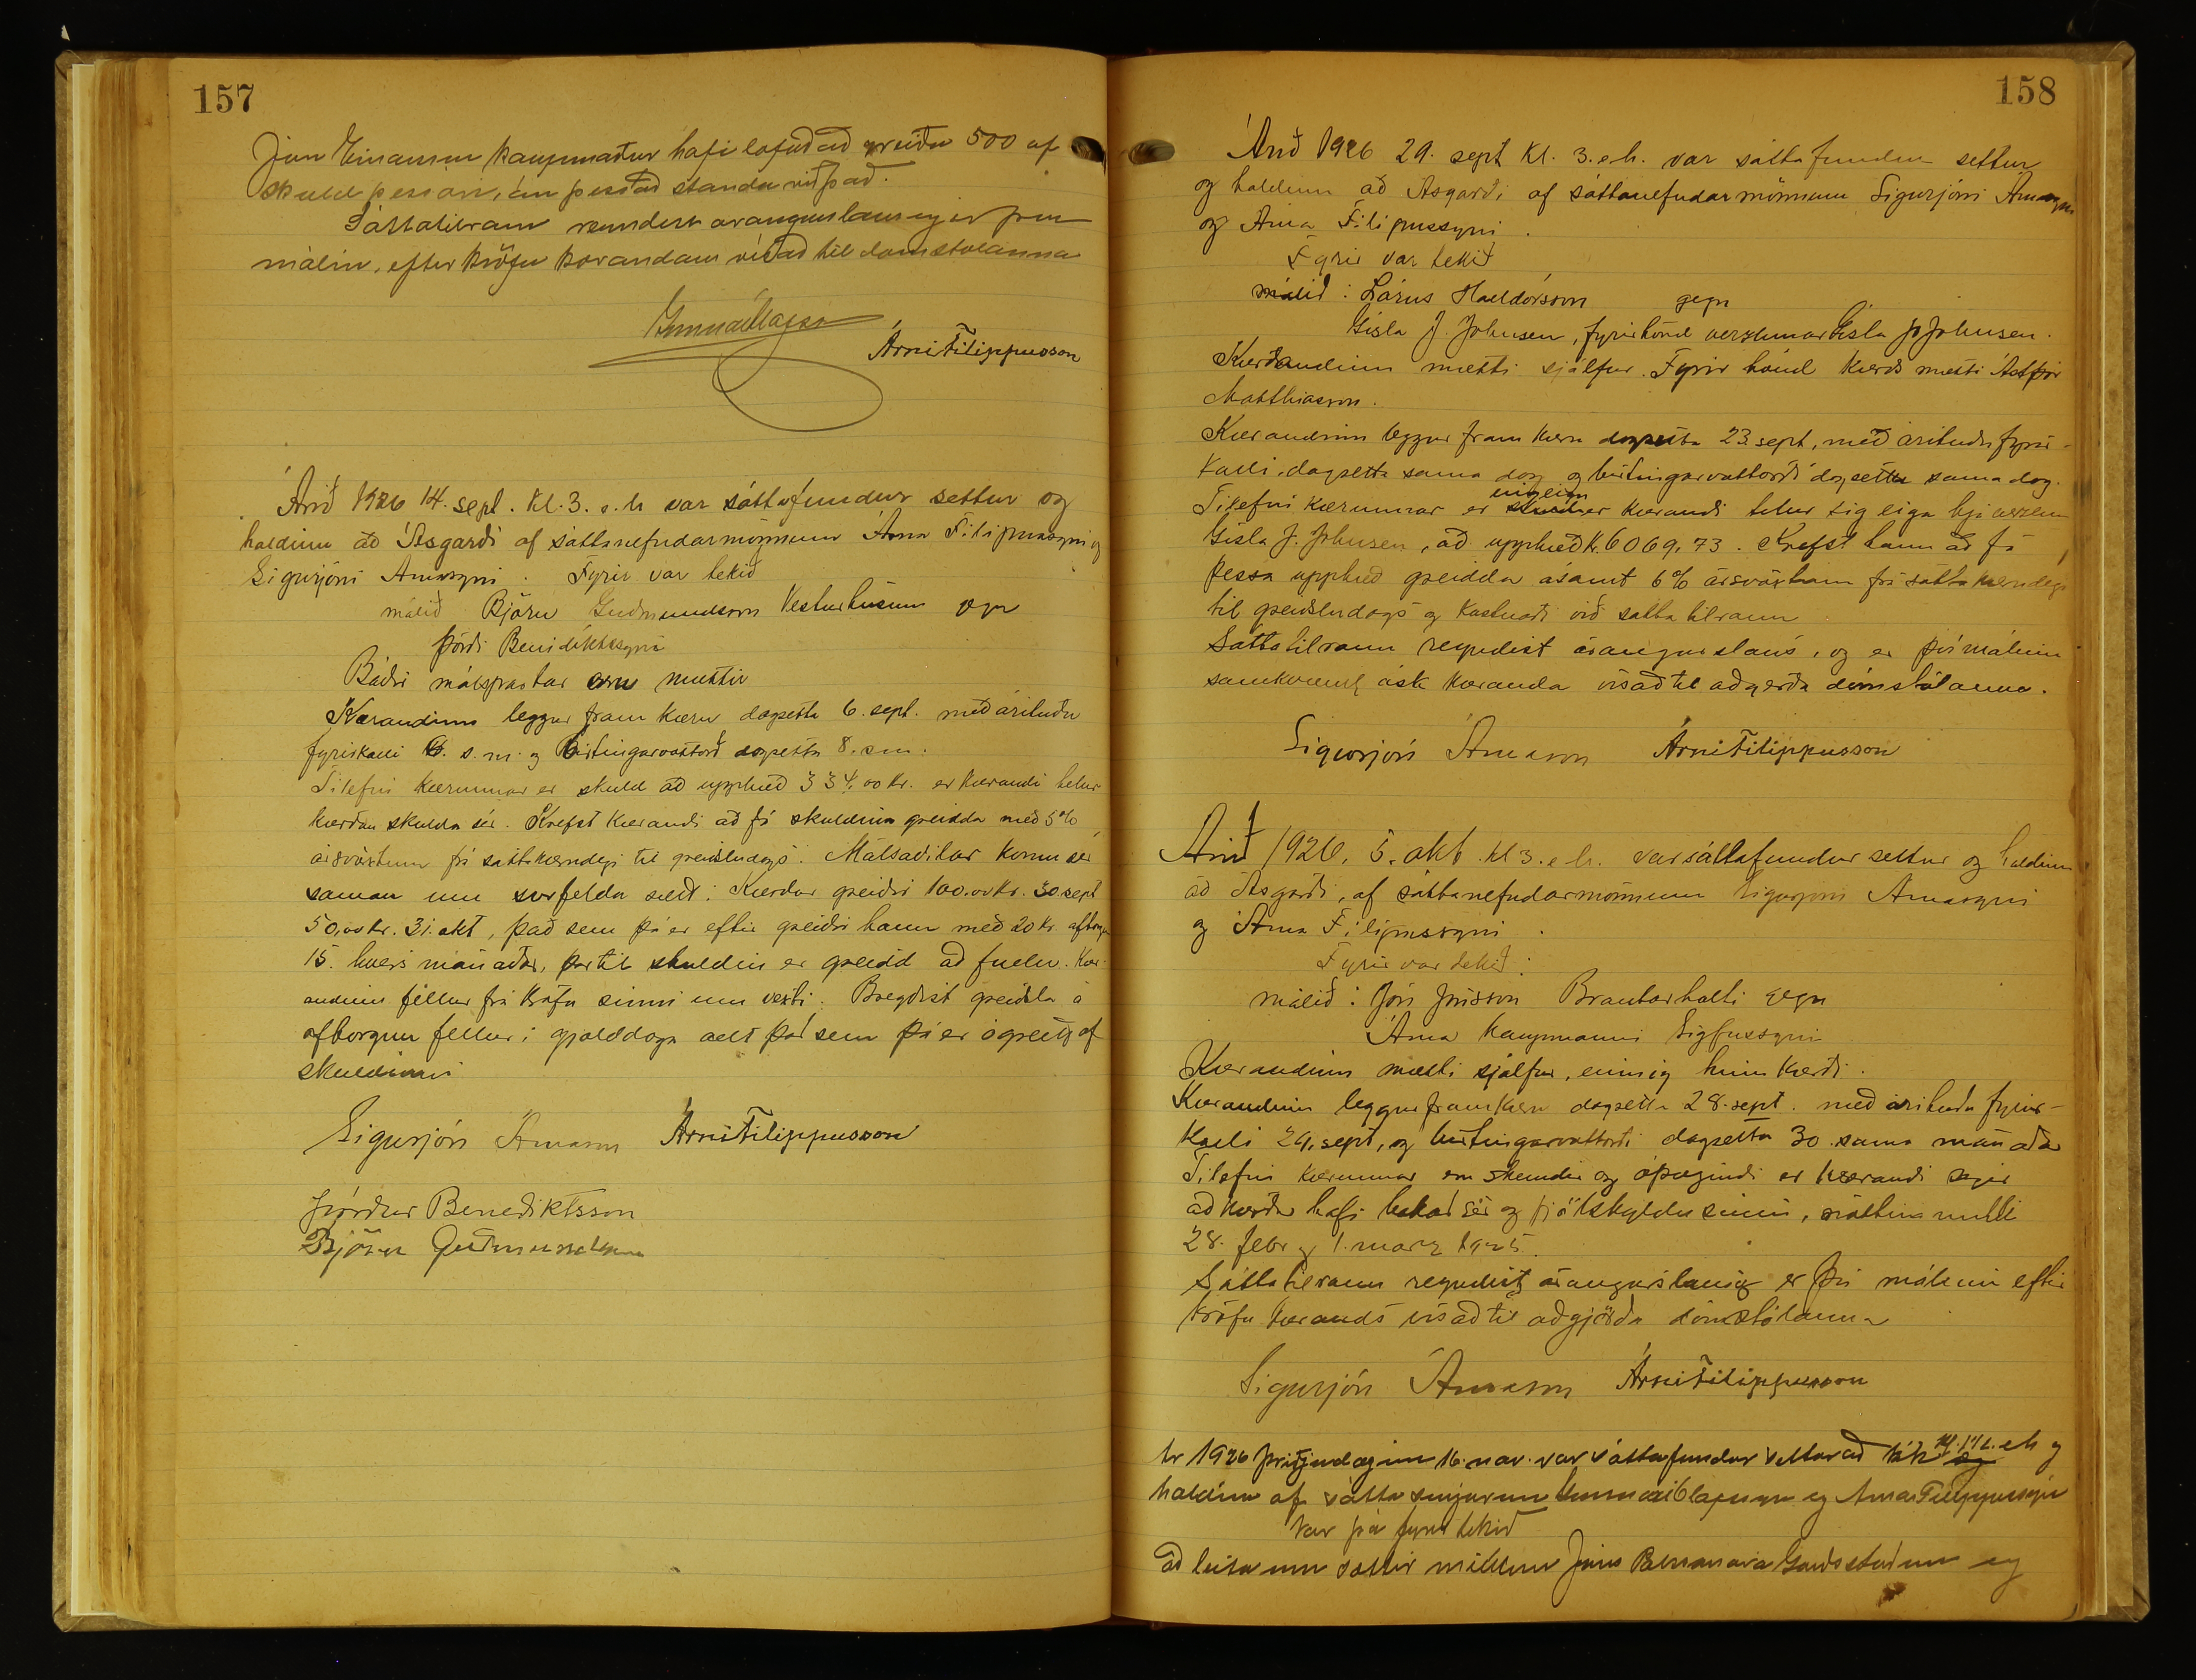 157
Jón Einarsson kaupmaður hafi lofað að greiða 500 af
skuld þessari, án þess að standa við það.
Sáttatilraun reyndist árangurslaus og er því
málinu, eftir kröfu kærandans vísað til domstolanna
Gunnar Ólafsson
Árni Filippusson
Árið 1926 14. sept. kl. 3. e. h var sáttafundur settur og
haldinn að Ásgarði af sáttanefndarmönnum Árna Filipussyni og
Sigurjóni Árnasyni. Fyrir var tekið
málið Björn Guðmundsson Vesturhúsum gegn
Þórði Benidiktssyni
Báðir málspartar eru mættir
Kærandinn leggur fram kæru dagsetta 6. sept. með árituðu
fyrirkalli 6. s. m. og Birtingarvottorð dagsetta 8. s m.
Tilefni kærunnar er skuld að upphæð 334,00 kr. er kærandi telur
kærðan skulda sér. Krefst kærandi að fá skuldina greidda með 5%
ársvöxtum frá sáttakærudegi til greiðsludags. Málsaðilar komu sér
saman um svofelda sætt: Kærður greiðir 100.00 kr. 30. sept
50,00 kr. 31. okt, það sem þá er eftir greiðir hann með 20 kr. afborgun
15. hvers mánaðar, þar til skuldin er greidd að fullu. Kær-
andinn fellur frá kröfu sinni um vexti. Bregðist greiðsla á
afborgun fellur í gjalddaga allt það sem þá er ógreitt af
skuldinni
Sigurjón Árnason Árni Filippusson
Þórður Benediktsson
Björn Guðmundsson
158
Árið 1926 29. sept kl. 3. e. h. var sáttafundur settur
og haldinn að Ásgarði af sáttanefndarmönnum Sigurjóni Árnasyni
og Árna Filipussyni.
Fyrir var tekið
málið: Lárus Halldórsson gegn
Gísla J. Johnsen, fyrir hönd verzlunar Gísla J. Johnsen.
Kærandinn mætti sjálfur. Fyrir hönd kærðs mætti Ástþór
Matthíasson.
Kærandinn leggur fram kæru dagsetta 23. sept, með árituðu fyrir-
kalli, dagsetta sama dag og birtingarvottorði dagsettu sama dag.
Tilefni kærunnar er inneign er kærandi telur sig eiga hjá verzlun
Gísla J. Johnsen, að upphæð k. 6069,73. Krefst hann að fá
þessa upphæð greidda ásamt 6% ársvöxtum frá sáttakærudegi
til greiðsludags og kostnaði við sáttatilraun
Sáttatilraun reyndist árangurslaus, og er því málinu
samkvæmt ósk kæranda vísað til aðgerða dómstólanna.
Sigurjón Árnason Árni Filippusson
Árið 1926, 5. okt. kl 3. e h. var sáttafundur settur og haldinn
að Ásgarði, af sáttanefndarmönnum Sigurjóni Árnasyni
og Árna Filipussyni.
Fyrir var tekið:
málið: Jón Jónsson Brautarholti gegn
Árna kaupmanni Sigfússyni
Kærandinn mætti sjálfur, einnig hinn kærði.
Kærandinn leggur fram kæru dagsetta 28. sept. með árituðu fyrir-
kalli 29. sept, og birtingarvottorði dagsetta 30. sama mánaðar
Tilefni kærunnar eru skemdir og óþægindi er kærandi segir
að kærður hafi bakað sér og fjölskyldu sinni, nóttina milli
28. febr og 1. marz 1925.
Sáttatilraun reyndist árangurslaus og er því málinu eftir
kröfu kærands vísað til aðgjörða dómstólanna
Sigurjón Árnason Árni Filippusson
Ár 1926 þriðjudaginn 16. nóv. var sáttafundur settur að kl. 1 1/2 e h og
haldinn af sáttasemjurum Gunnari Ólafssyni og Árna Filippussyni
Var þá fyrir tekið
að leita um sættir milli Jóns Garðsstöðum og